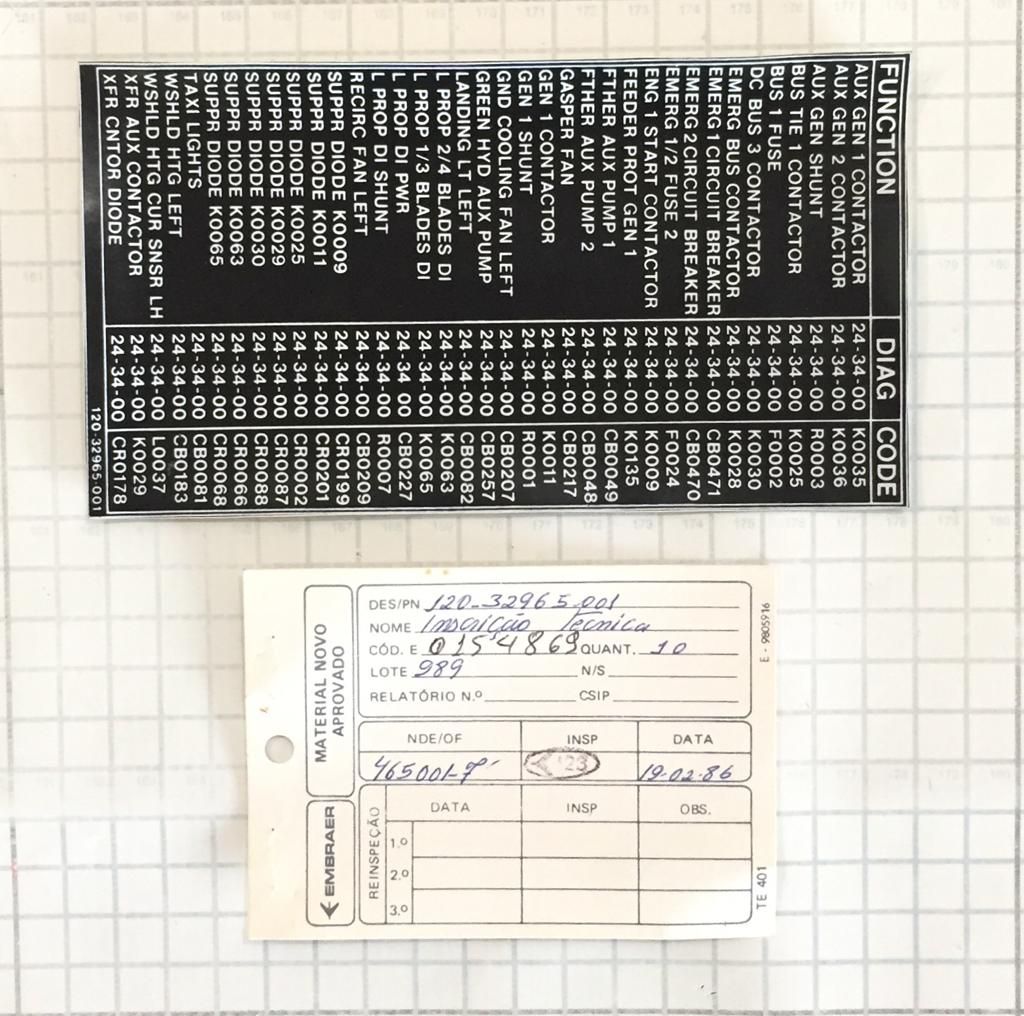 FUNCTION DIAG CODE
AUX GEN 1 CONTACTOR 24-34-00 K0035
AUX GEN 2 CONTACTOR 24-34-00 K0036
AUX GEN SHUNT 24-34-00 R0003
BUS TIE 1 CONTACTOR 24-34-00 K0025
BUS 1 FUSE 24-34-00 F0002
DC BUS 3 CONTACTOR 24-34-00 K0030
EMERG BUS CONTACTOR 24-34-00 K0028
EMERG 1 CIRCUIT BREAKER 24-34-00 CB0471
EMERG 2 CIRCUIT BREAKER 24-34-00 CB0470
EMERG 1/2 FUSE 2 24-34-00 F0024
ENG 1 START CONTACTOR 24-34-00 K0009
FEEDER PROT GEN 1 24-34-00 K0135
FTHER AUX PUMP 1 24-34-00 CB0049
FTHER AUX PUMP 2 24-34-00 CB0048
GASPER FAN 24-34-00 CB0217
GEN 1 CONTACTOR 24-34-00 K0011
GEN 1 SHUNT 24-34-00 R0001
GND COOLING FAN LEFT 24-34-00 CB0207
GREEN HYD AUX PUMP 24-34-00 CB0257
LANDING LT LEFT 24-34-00 CB0082
L PROP 2/4 BLADES DI 24-34-00 K0063
L PROP 1/3 BLADES DI 24-34-00 K0065
L PROP DI PWR 24-34-00 CB0227
L PROP DI SHUNT 24-34-00 R0007
RECIRC FAN LEFT 24-34-00 CB0299
SUPPR DIODE K0009 24-34-00 CR0199
SUPPR DIODE K0011 24-34-00 CR0201
SUPPR DIODE K0025 24-34-00 CR0002
SUPPR DIODE K0029 24-34-00 CR0087
SUPPR DIODE K0030 24-34-00 CR0088
SUPPR DIODE K0063 24-34-00 CR0066
SUPPR DIODE K0065 24-34-00 CR0068
TAXI LIGHTS 24-34-00 CB0081
WSHLD HTG LEFT 24-34-00 CB0183
WSHLD HTG CUR SNSR LH 24-34-00 L0037
XFR AUX CONTACTOR 24-34-00 K0029
XFR CNTOR DIODE 24-34-00 CR0178
120-32965-001
MATERIAL NOVO
APROVADO
EMBRAER
DES/PN 120-32965-001
NOME Inscrição Tecnica
CÓD. E 0154869 QUANT. 10
LOTE 989 N/S
RELATÓRIO N.º CSIP
E - 9805916
NDE/OF INSP DATA
465001-7 123 19-02-86
REINSPEÇÃO
DATA INSP OBS.
1.º
2.º
3.º
TE 401